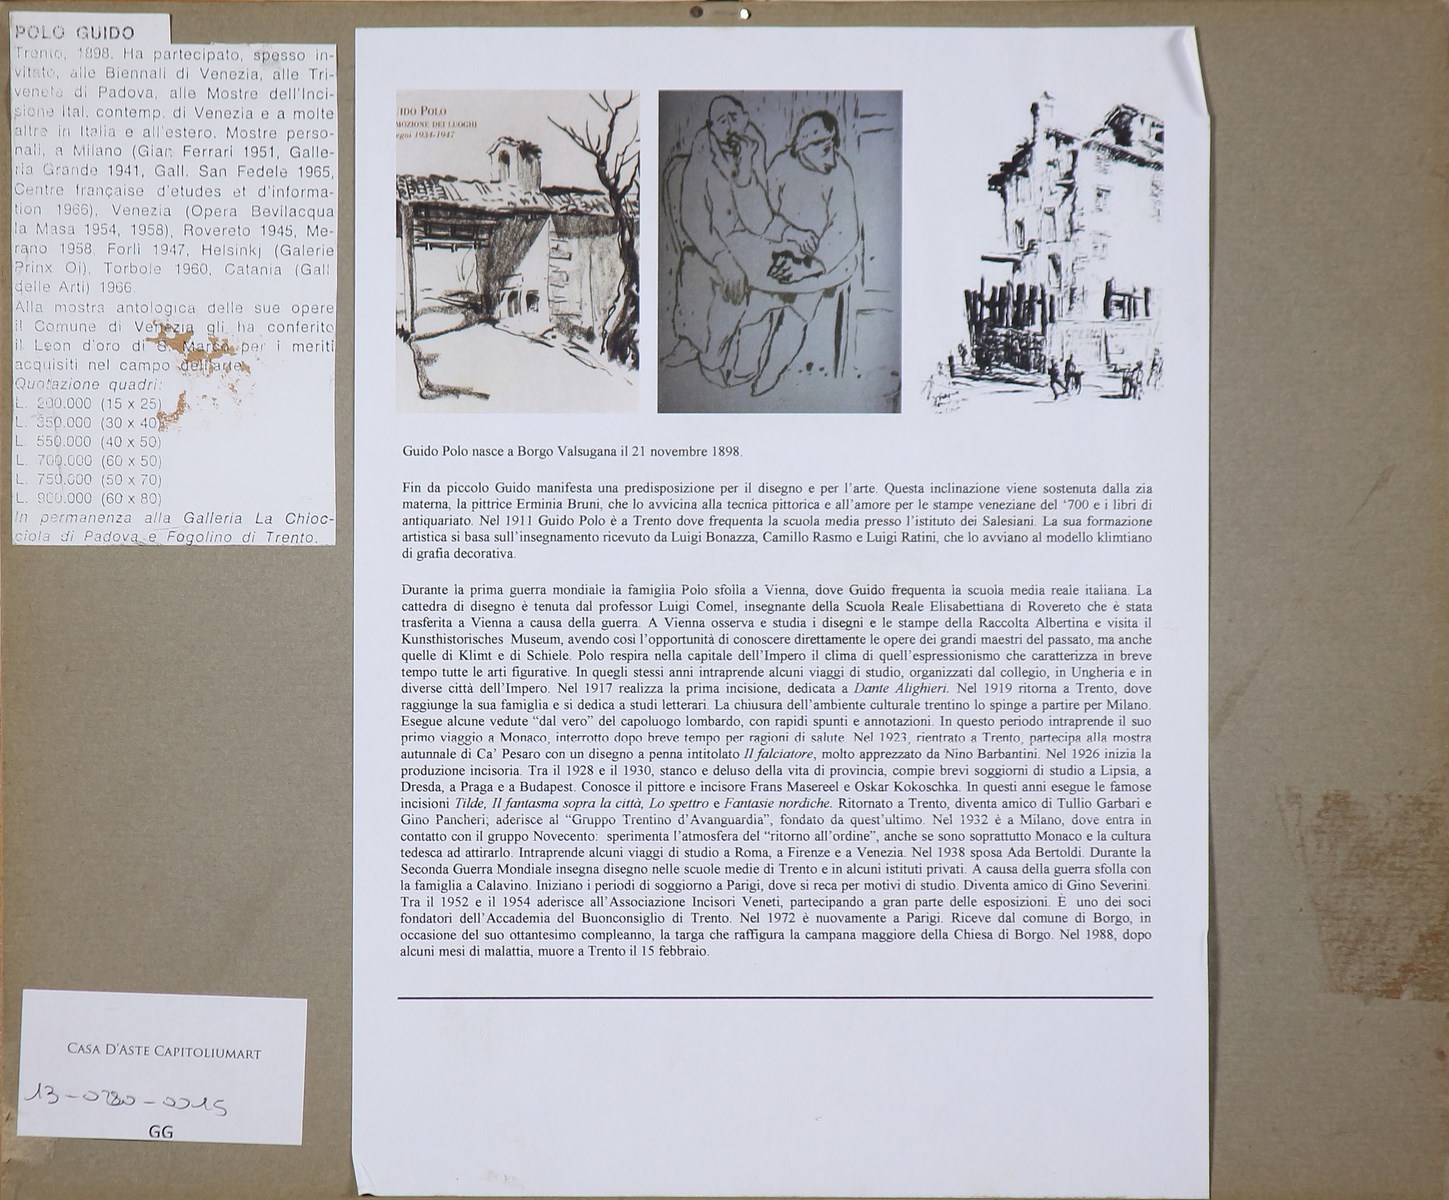 POLO GUIDO
Trento, 1898. Ha partecipato, spesso in-
vitato, alle Biennali di Venezia, alle Tri-
venete di Padova, alle Mostre dell'Inci-
sione Ital. contemp. di Venezia e a molte
altre in Italia e all'estero. Mostre perso-
nali, a Milano (Gian Ferrari 1951, Galle-
ria Grande 1941, Gall. San Fedele 1965,
Centre française d'etudes et d'informa-
tion 1966), Venezia (Opera Bevilacqua
la Masa 1954, 1958), Rovereto 1945, Me-
rano 1958, Forlì 1947, Helsinkj (Galerie
Prinx Oi), Torbole 1960, Catania (Gall.
delle Arti) 1966.
Alla mostra antologica delle sue opere
il Comune di Venezia gli ha conferito
il Leon d'oro di S. Marco per i meriti
acquisiti nel campo dell'arte.
Quotazione quadri:
L. 200.000 (15 x 25)
L. 350.000 (30 x 40)
L. 550.000 (40 x 50)
L. 700.000 (60 x 50)
L. 750.000 (50 x 70)
L. 900.000 (60 x 80)
In permanenza alla Galleria La Chioc-
ciola di Padova e Fogolino di Trento.
IDO POLO
MOZIONE DEI LUOGHI
egni 1934-1947
Guido Polo nasce a Borgo Valsugana il 21 novembre 1898.
Fin da piccolo Guido manifesta una predisposizione per il disegno e per l'arte. Questa inclinazione viene sostenuta dalla zia
materna, la pittrice Erminia Bruni, che lo avvicina alla tecnica pittorica e all'amore per le stampe veneziane del '700 e i libri di
antiquariato. Nel 1911 Guido Polo è a Trento dove frequenta la scuola media presso l'istituto dei Salesiani. La sua formazione
artistica si basa sull'insegnamento ricevuto da Luigi Bonazza, Camillo Rasmo e Luigi Ratini, che lo avviano al modello klimtiano
di grafia decorativa.
Durante la prima guerra mondiale la famiglia Polo sfolla a Vienna, dove Guido frequenta la scuola media reale italiana. La
cattedra di disegno è tenuta dal professor Luigi Comel, insegnante della Scuola Reale Elisabettiana di Rovereto che è stata
trasferita a Vienna a causa della guerra. A Vienna osserva e studia i disegni e le stampe della Raccolta Albertina e visita il
Kunsthistorisches Museum, avendo così l'opportunità di conoscere direttamente le opere dei grandi maestri del passato, ma anche
quelle di Klimt e di Schiele. Polo respira nella capitale dell'Impero il clima di quell'espressionismo che caratterizza in breve
tempo tutte le arti figurative. In quegli stessi anni intraprende alcuni viaggi di studio, organizzati dal collegio, in Ungheria e in
diverse città dell'Impero. Nel 1917 realizza la prima incisione, dedicata a Dante Alighieri. Nel 1919 ritorna a Trento, dove
raggiunge la sua famiglia e si dedica a studi letterari. La chiusura dell'ambiente culturale trentino lo spinge a partire per Milano.
Esegue alcune vedute "dal vero" del capoluogo lombardo, con rapidi spunti e annotazioni. In questo periodo intraprende il suo
primo viaggio a Monaco, interrotto dopo breve tempo per ragioni di salute. Nel 1923, rientrato a Trento, partecipa alla mostra
autunnale di Ca' Pesaro con un disegno a penna intitolato Il falciatore, molto apprezzato da Nino Barbantini. Nel 1926 inizia la
produzione incisoria. Tra il 1928 e il 1930, stanco e deluso della vita di provincia, compie brevi soggiorni di studio a Lipsia, a
Dresda, a Praga e a Budapest. Conosce il pittore e incisore Frans Masereel e Oskar Kokoschka. In questi anni esegue le famose
incisioni Tilde, Il fantasma sopra la città, Lo spettro e Fantasie nordiche. Ritornato a Trento, diventa amico di Tullio Garbari e
Gino Pancheri; aderisce al "Gruppo Trentino d'Avanguardia", fondato da quest'ultimo. Nel 1932 è a Milano, dove entra in
contatto con il gruppo Novecento: sperimenta l'atmosfera del "ritorno all'ordine", anche se sono soprattutto Monaco e la cultura
tedesca ad attirarlo. Intraprende alcuni viaggi di studio a Roma, a Firenze e a Venezia. Nel 1938 sposa Ada Bertoldi. Durante la
Seconda Guerra Mondiale insegna disegno nelle scuole medie di Trento e in alcuni istituti privati. A causa della guerra sfolla con
la famiglia a Calavino. Iniziano i periodi di soggiorno a Parigi, dove si reca per motivi di studio. Diventa amico di Gino Severini.
Tra il 1952 e il 1954 aderisce all'Associazione Incisori Veneti, partecipando a gran parte delle esposizioni. È uno dei soci
fondatori dell'Accademia del Buonconsiglio di Trento. Nel 1972 è nuovamente a Parigi. Riceve dal comune di Borgo, in
occasione del suo ottantesimo compleanno, la targa che raffigura la campana maggiore della Chiesa di Borgo. Nel 1988, dopo
alcuni mesi di malattia, muore a Trento il 15 febbraio.
CASA D'ASTE CAPITOLIUMART
13-0780-0015
GG